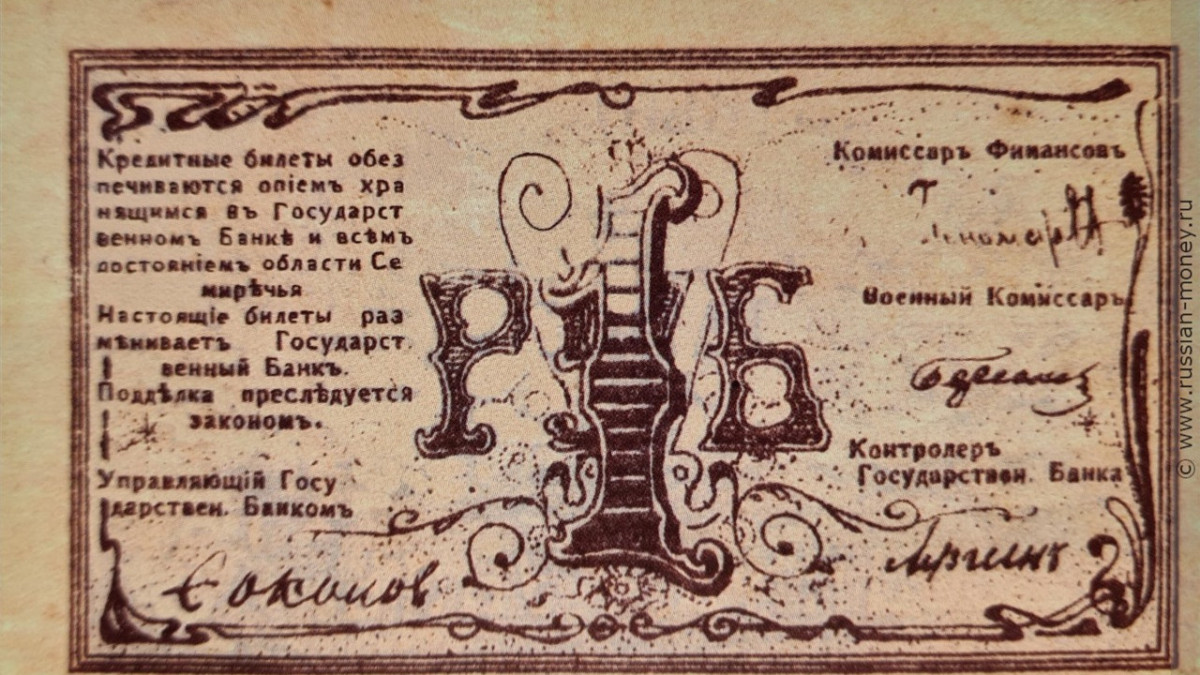 Кредитные билеты обез
печиваются опіемъ хра
нящимся въ Государст
венномъ Банкѣ и всѣмъ
достояніемъ области Се
мирѣчья
Настоящіе билеты раз
мѣниваетъ Государст
венный Банкъ.
Поддѣлка преслѣдуется
закономъ.
Управляющій Госу
дарствен. Банкомъ
Соколов
1
РУБ
Комиссаръ Финансовъ
Военный Комиссаръ
Контролеръ
Государствен. Банка
© www.russian-money.ru